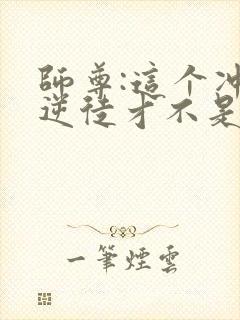 師尊:這个冲
逆徒才不是
一筆煙雲